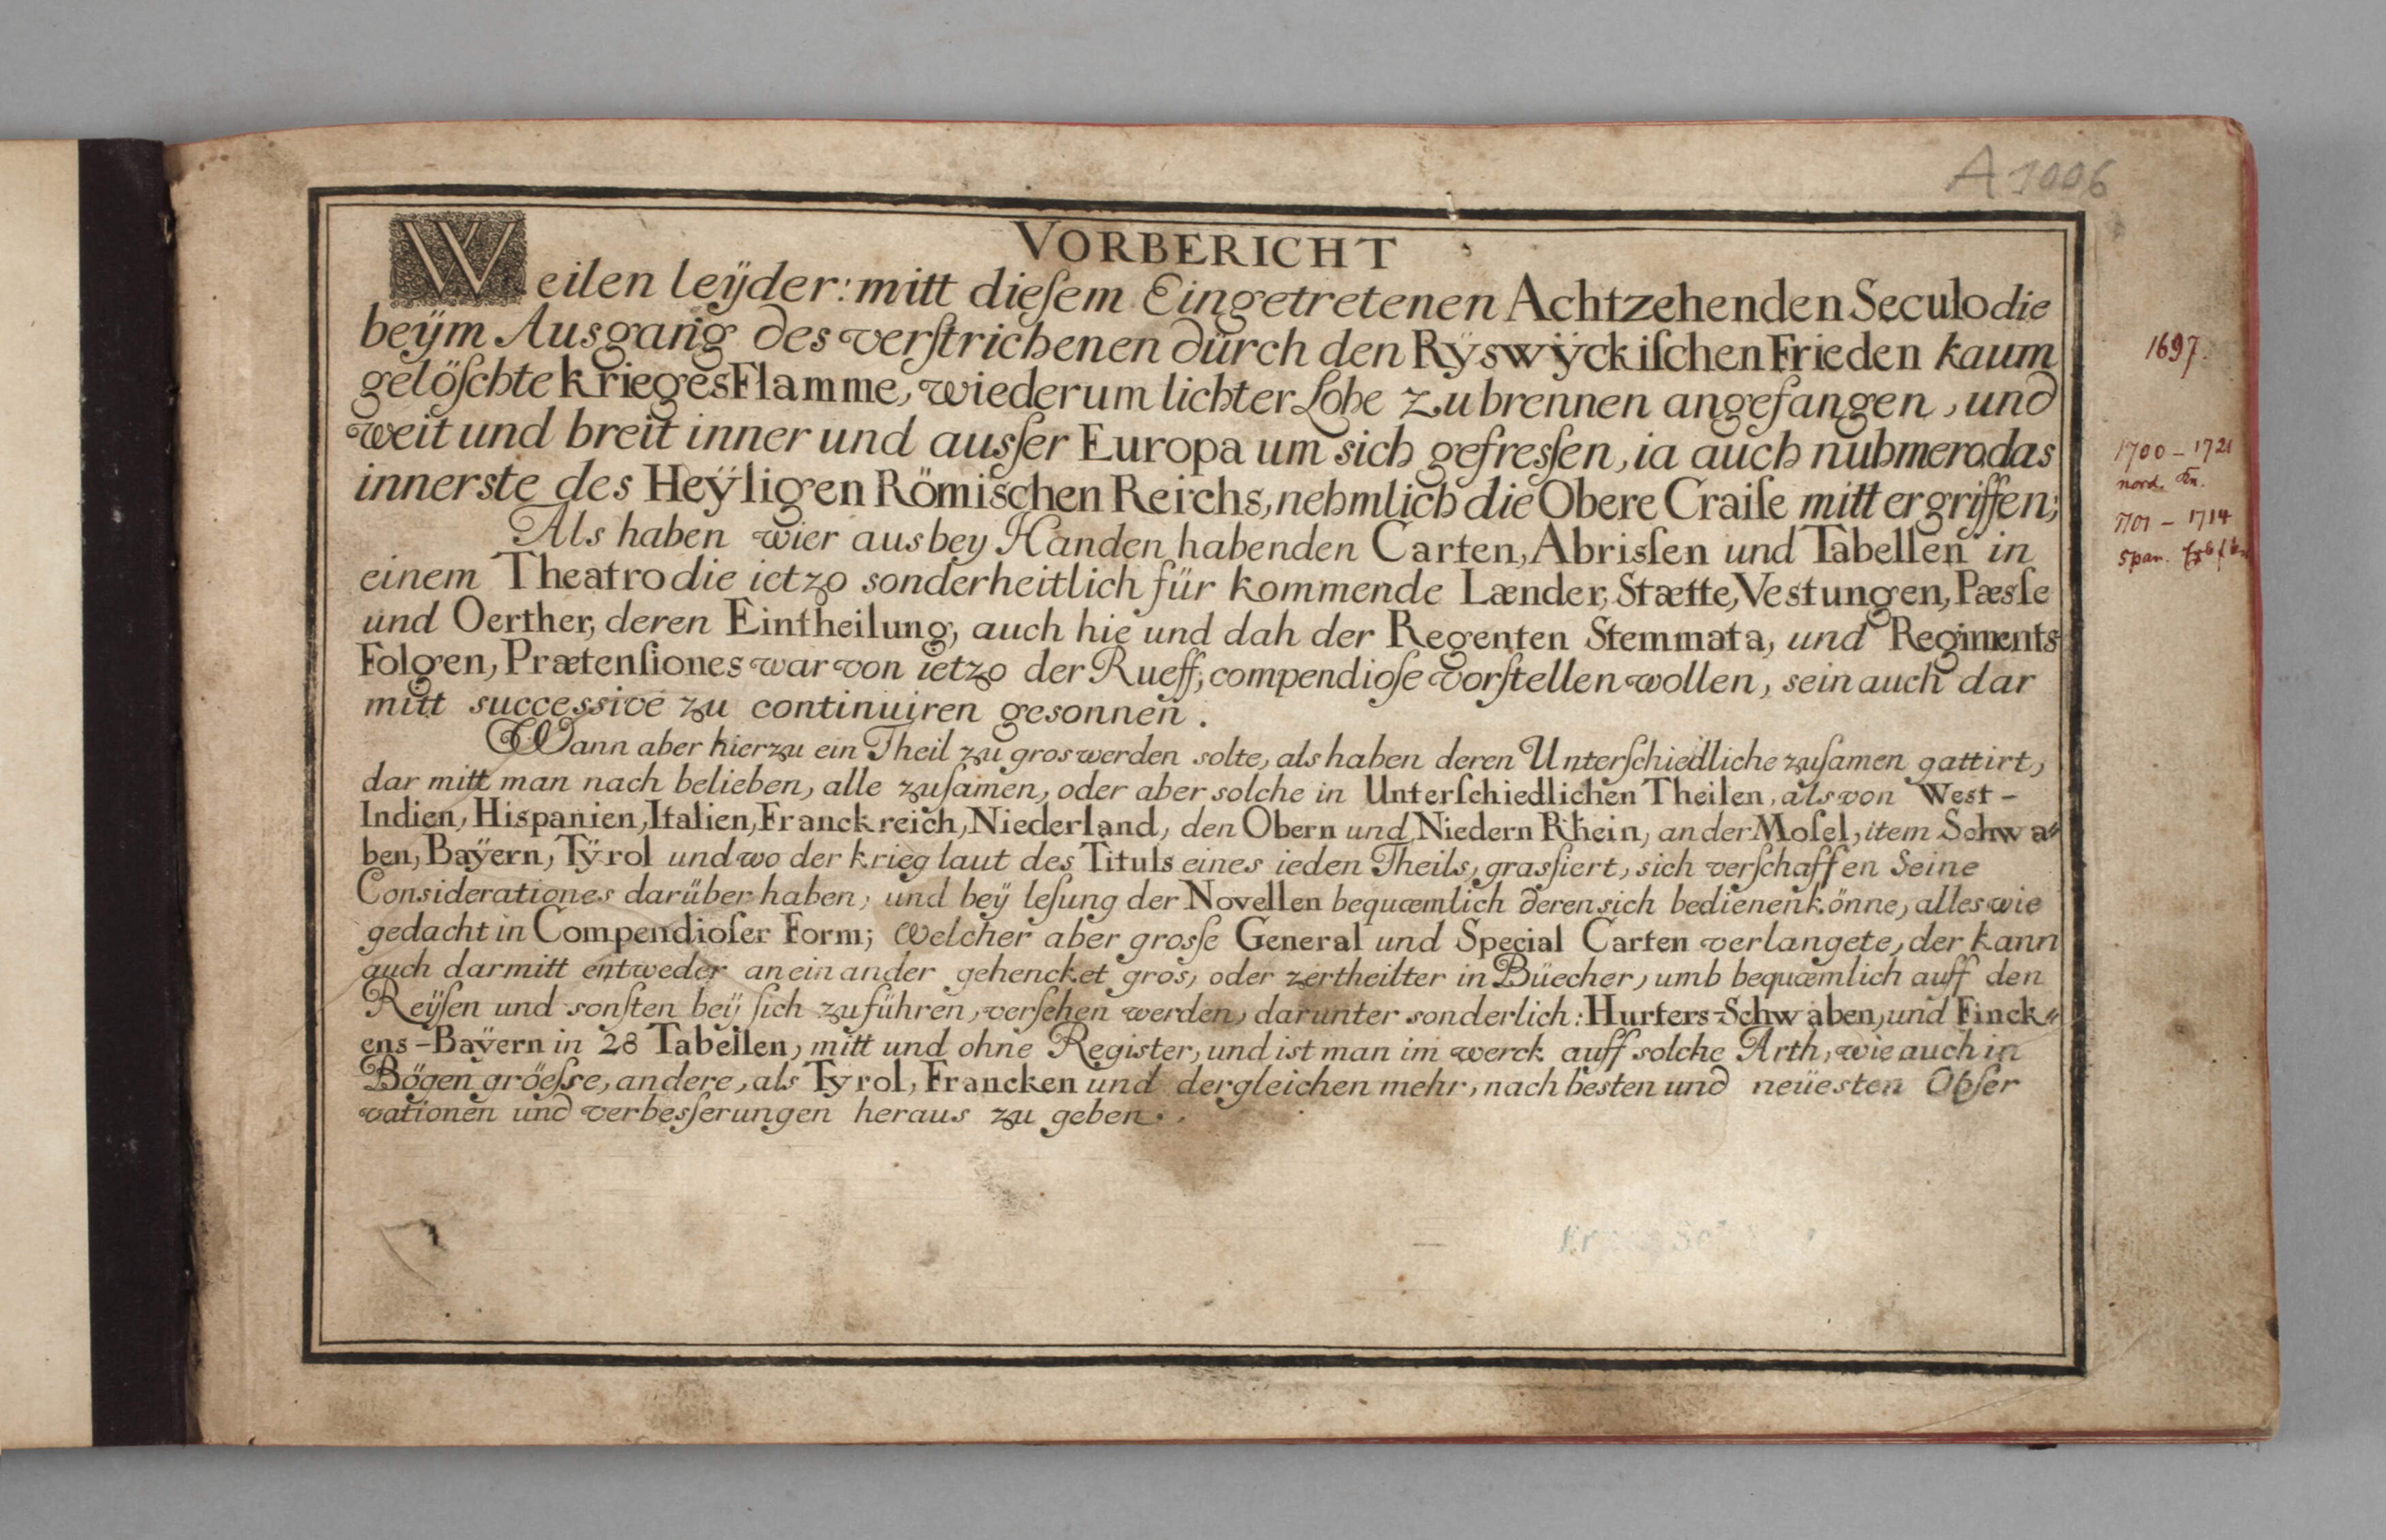 A 1006
VORBERICHT
Weilen leÿder: mitt dieſem Eingetretenen Achtzehenden Seculo die
beÿm Ausgang des verſtrichenen durch den Rÿswÿckiſchen Frieden kaum
gelöſchte kriegesFlamme, wiederum lichter Lohe zu brennen angefangen, und
weit und breit inner und ausſer Europa um sich gefresſen, ia auch nuhmero das
innerste des Heÿligen Römischen Reichs, nehmlich die Obere Craiſe mitt ergriffen;
Als haben wier aus bey Handen habenden Carten, Abrisſen und Tabellen in
einem Theatro die ietzo sonderheitlich für kommende Lænder, Stætte, Vestungen, Pæsſe
und Oerther, deren Eintheilung, auch hie und dah der Regenten Stemmata, und Regiments
Folgen, Prætenſiones war von ietzo der Rueff, compendioſe vorſtellen wollen, sein auch dar
mitt successive zu continuiren gesonnen.
Wann aber hierzu ein Theil zu gros werden solte, als haben deren Unterſchiedliche zuſamen gattirt,
dar mitt man nach belieben, alle zuſamen, oder aber solche in Unterſchiedlichen Theilen, als von West-
Indien, Hispanien, Italien, Franckreich, Niederland, den Obern und Niedern Rhein, an der Moſel, item Schwa〃
ben, Baÿern, Tÿrol und wo der krieg laut des Tituls eines ieden Theils, grasſiert, sich verſchaffen Seine
Considerationes darüber haben, und beÿ leſung der Novellen bequæmlich deren sich bedienen könne, alles wie
gedacht in Compendioſer Form; Welcher aber grosſe General und Special Carten verlangete, der kann
auch darmitt entweder an ein ander gehencket gros, oder zertheilter in Büecher, umb bequæmlich auff den
Reÿſen und sonſten beÿ ſich zu führen, verſehen werden, darunter sonderlich: Hurters-Schwaben, und Finck〃
ens-Baÿern in 28 Tabellen, mitt und ohne Register, und ist man im werck auff solche Arth, wie auch in
Bögen gröeſsre, andere, als Tyrol, Francken und dergleichen mehr, nach besten und neüesten Obſer
vationen und verbesſerungen heraus zu geben.
1697.
1700 - 1721
nord.
1701 - 1714
span.